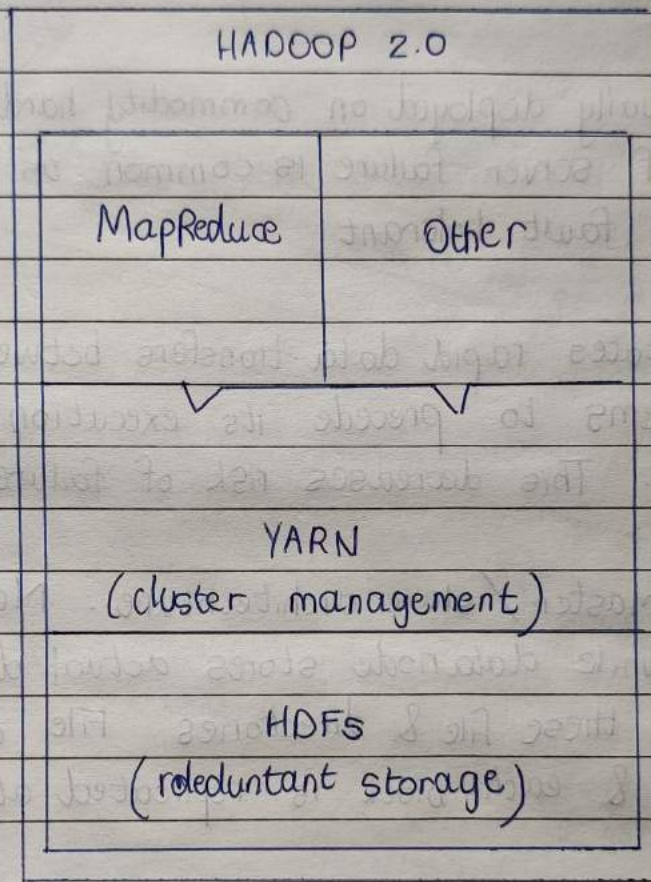 HADOOP 2.0
MapReduce Other
YARN
(cluster management)
HDFs
(rdeduntant storage)